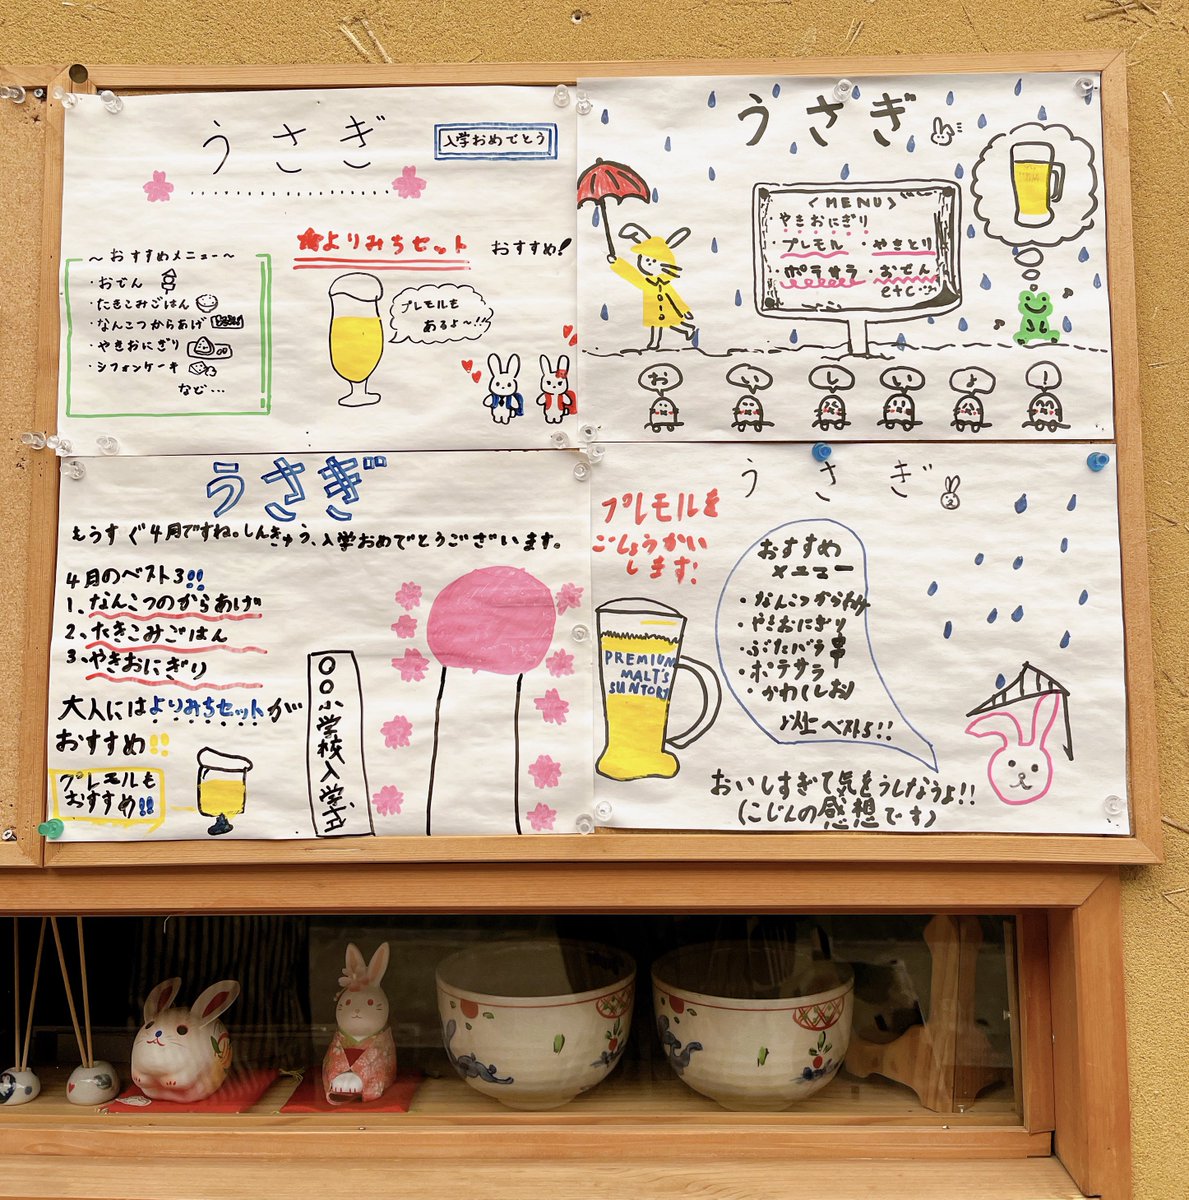 うさぎ
入学おめでとう
よりみちセット
おすすめ!
〜おすすめメニュー〜
・おでん
・たきこみごはん
・なんこつからあげ
・やきおにぎり
・シフォンケーキ
など…
プレモルも
あるよ〜!!
うさぎ
<MENU>
やきおにぎり
・プレモル ・やきとり
・ポテサラ ・おでん
etc…
おいしいよ!
うさぎ
もうすぐ4月ですね。しんきゅう、入学おめでとうございます。
4月のベスト3!!
1、なんこつのからあげ
2、たきこみごはん
3、やきおにぎり
大人にはよりみちセットが
おすすめ!!
プレモルも
おすすめ!!
〇〇小学校入学式
うさぎ
プレモルを
ごしょうかい
します!
PREMIUM
MALT'S
SUNTORY
おすすめ
メニュー
・なんこつからあげ
・やきおにぎり
・ぶたバラ串
・ポテサラ
・かわ(しお)
以上ベスト5!!
おいしすぎて気をうしなうよ!!
(こじんの感想です)